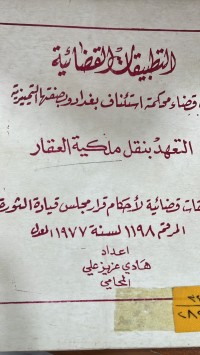 التطبيقات القضائية
قضاء محكمة استئناف بغداد وبصفتها التمييزية
التعهد بنقل ملكية العقار
قات قضائية لأحكام قرار مجلس قيادة الثورة
المرقم ١١٩٨ لسنة ١٩٧٧ المعدل
اعداد
هادي عزيز علي
المحامي